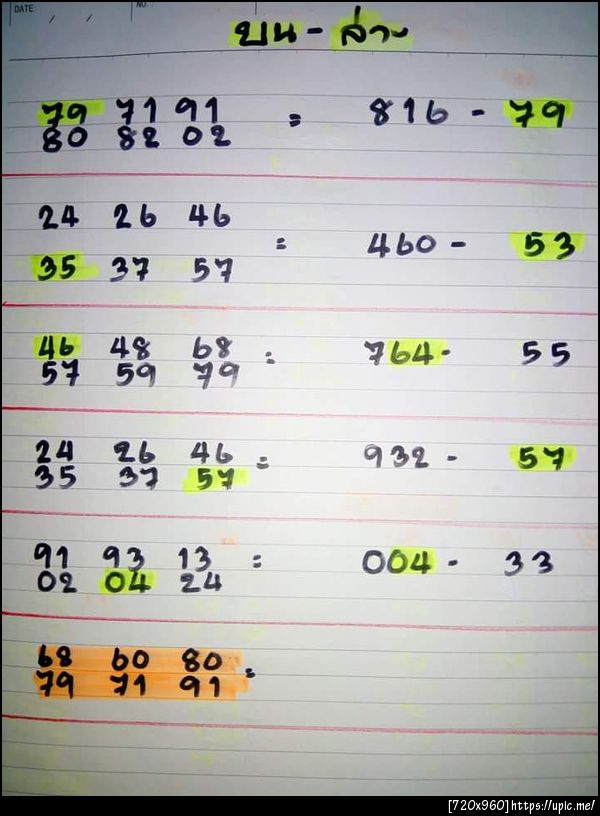 DATE: / / NO.
บน - ล่าง
79 71 91
80 82 02 = 816 - 79
24 26 46
= 460 - 53
35 37 57
46 48 68
57 59 79 = 764 - 55
24 26 46
35 37 57 = 932 - 57
91 93 13 = 004 - 33
02 04 24
68 60 80
79 71 91 =
[720x960]https://upic.me/